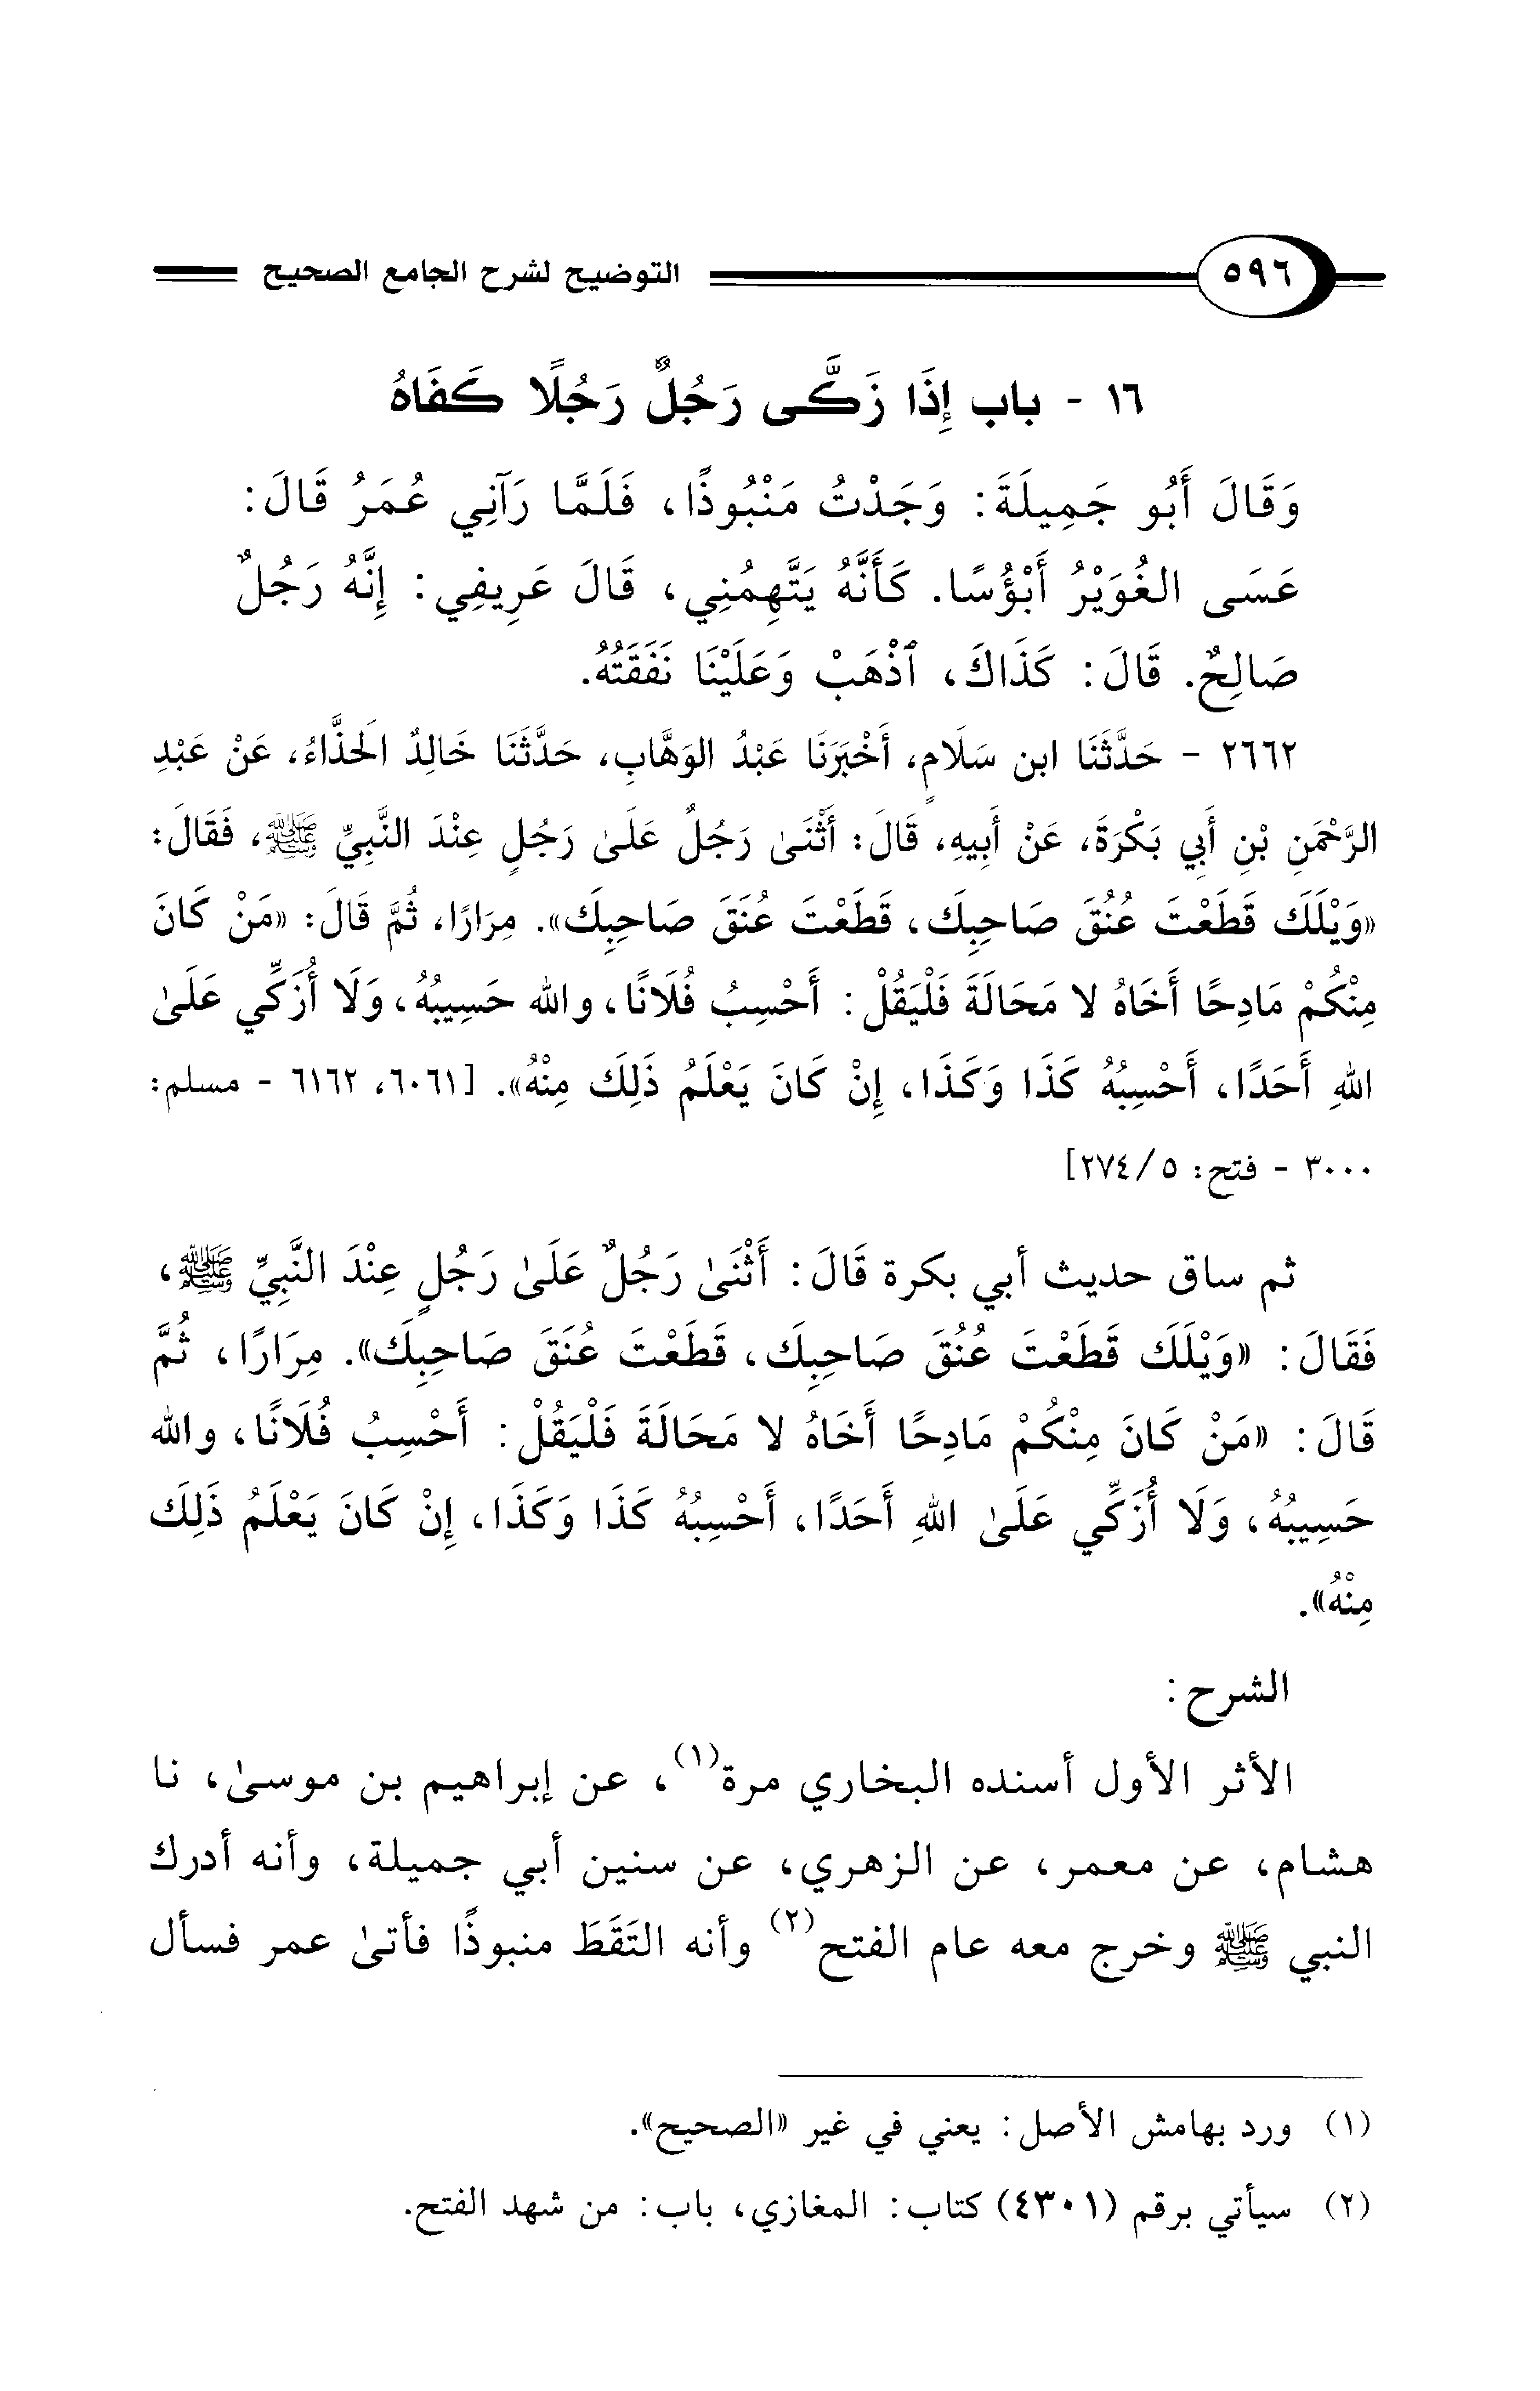 ٥٩٦ التوضيح لشرح الجامع الصحيح
١٦ - باب إِذَا زَكَّى رَجُلٌ رَجُلًا كَفَاهُ
وَقَالَ أَبُو جَمِيلَةَ: وَجَدْتُ مَنْبُوذًا، فَلَمَّا رَآنِي عُمَرُ قَالَ:
عَسَى الغُوَيْرُ أَبْؤُسًا. كَأَنَّهُ يَتَّهِمُنِي، قَالَ عَرِيفِي: إِنَّهُ رَجُلٌ
صَالِحٌ. قَالَ: كَذَاكَ، ٱذْهَبْ وَعَلَيْنَا نَفَقَتُهُ.
٢٦٦٢ - حَدَّثَنَا ابن سَلَامٍ، أَخْبَرَنَا عَبْدُ الوَهَّابِ، حَدَّثَنَا خَالِدٌ الَحذَّاءُ، عَنْ عَبْدِ
الرَّحْمَنِ بْنِ أَبِي بَكْرَةَ، عَنْ أَبِيهِ، قَالَ: أَثْنَىٰ رَجُلٌ عَلَىٰ رَجُلٍ عِنْدَ النَّبِيِّ ﷺ، فَقَالَ:
«وَيْلَكَ قَطَعْتَ عُنُقَ صَاحِبِكَ، قَطَعْتَ عُنَقَ صَاحِبِكَ». مِرَارًا، ثُمَّ قَالَ: «مَنْ كَانَ
مِنْكُمْ مَادِحًا أَخَاهُ لا مَحَالَةَ فَلْيَقُلْ: أَحْسِبُ فُلَانًا، والله حَسِيبُهُ، وَلَا أُزَكِّي عَلَىٰ
اللهِ أَحَدًا، أَحْسِبُهُ كَذَا وَكَذَا، إِنْ كَانَ يَعْلَمُ ذَلِكَ مِنْهُ». [٦٠٦١، ٦١٦٢ - مسلم:
٣٠٠٠ - فتح: ٥/ ٢٧٤]
ثم ساق حديث أبي بكرة قَالَ: أَثْنَىٰ رَجُلٌ عَلَىٰ رَجُلٍ عِنْدَ النَّبِيِّ ﷺ،
فَقَالَ: «وَيْلَكَ قَطَعْتَ عُنُقَ صَاحِبِكَ، قَطَعْتَ عُنَقَ صَاحِبِكَ». مِرَارًا، ثُمَّ
قَالَ: «مَنْ كَانَ مِنْكُمْ مَادِحًا أَخَاهُ لا مَحَالَةَ فَلْيَقُلْ: أَحْسِبُ فُلَانًا، والله
حَسِيبُهُ، وَلَا أُزَكِّي عَلَىٰ اللهِ أَحَدًا، أَحْسِبُهُ كَذَا وَكَذَا، إِنْ كَانَ يَعْلَمُ ذَلِكَ
مِنْهُ».
الشرح:
الأثر الأول أسنده البخاري مرة(١)، عن إبراهيم بن موسىٰ، نا
هشام، عن معمر، عن الزهري، عن سنين أبي جميلة، وأنه أدرك
النبي ﷺ وخرج معه عام الفتح(٢) وأنه التَقَطَ منبوذًا فأتىٰ عمر فسأل
(١) ورد بهامش الأصل: يعني في غير «الصحيح».
(٢) سيأتي برقم (٤٣٠١) كتاب: المغازي، باب: من شهد الفتح.